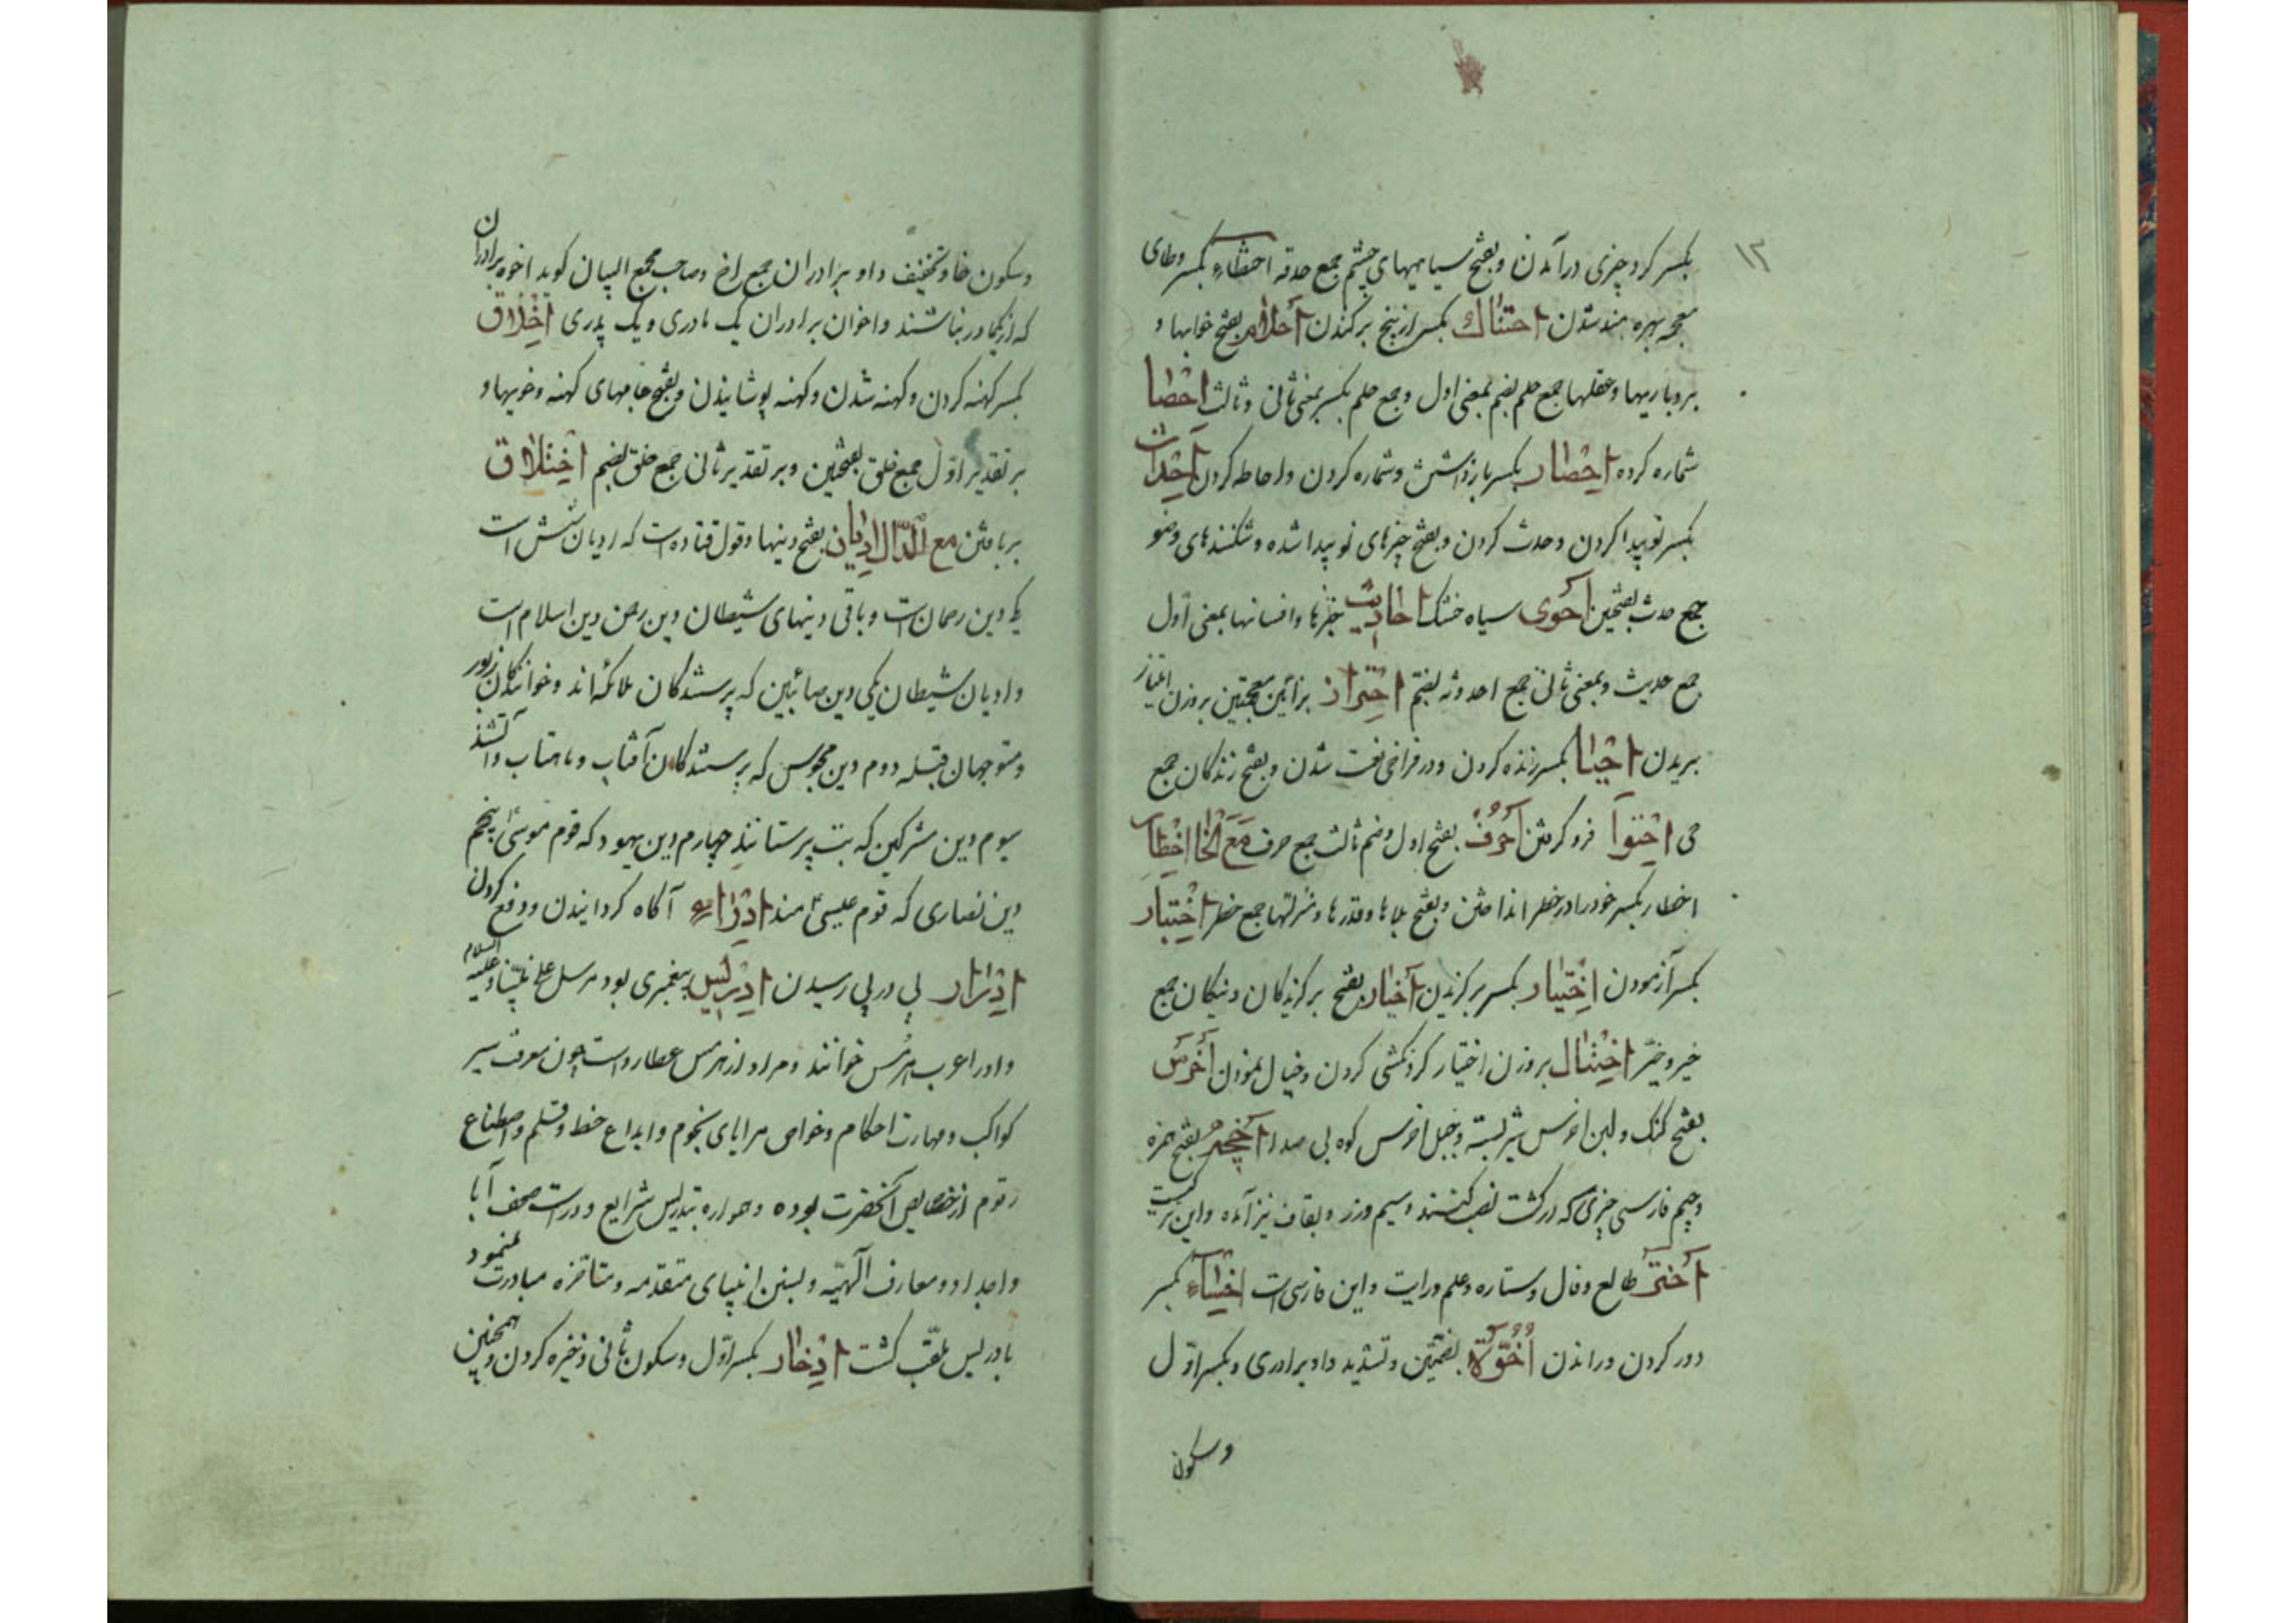 ۱۳
بکسر کرد چیزی درآمدن و بفتح سیاهیهای چشم جمع حدقه احتظاء بکسر و طای
معجمه بهره مند شدن احتناک بکسر از بیخ برکندن احلام بفتح خوابها و
بردباریها و عقلها جمع حلم بضم بمعنی اول و جمع حلم بکسر بمعنی ثانی و ثالث احصا
شماره کرده احصار بکسر بازداشتن و شماره کردن و احاطه کردن احداث
بکسر نو پیدا کردن و حدث کردن و بفتح چیزهای نو پیدا شده و شکنندهای وضو
جمع حدث بفتحین احوی سیاه خشک احادیث خبرها و افسانها بمعنی اول
جمع حدیث و بمعنی ثانی جمع احدوثه بضم احتزاز بزائین معجمتین بروزن امتیاز
بریدن احیا بکسر زنده کردن و در فراخی نعمت شدن و بفتح زندگان جمع
حی احتوا فرو گرفتن احرف بفتح اول و ضم ثالث جمع حرف مع الخا اخطار
اخطار بکسر خود را در خطر انداختن و بفتح بلاها و قدرها و منزلتها جمع خطر اختبار
بکسر آزمودن اختیار بکسر برگزیدن اخیار بفتح برگزیدگان و نیکان جمع
خیر و خیّر اختیال بروزن اختیار گردنکشی کردن و خیال نمودن اخرس
بفتح گنگ و لبن اخرس شیر بسته و جبل اخرس کوه بی صدا اخچه بفتح همزه
و چیم فارسی چیزی که در کشت نصب کنند و سیم و زر و بقاف نیز آمده و این ترکیست
اختر طالع و فال و ستاره و علم و رایت و این فارسی است اخساء بکسر
دور کردن و راندن اخوّة بضمتین و تشدید واو برادری و بکسر اوّل
و سکون
و سکون خا و تخفیف واو برادران جمع اخ و صاحب مجمع البیان گوید اخوه برادران
که از یکمادر نباشند و اخوان برادران یک مادری و یک پدری اخلاق
بکسر کهنه کردن و کهنه شدن و کهنه پوشانیدن و بفتح جامهای کهنه و خویها و
بر تقدیر اوّل جمع خلق بفتحین و بر تقدیر ثانی جمع خلق بضم اختلاق
بربافتن مع الدّال ادیان بفتح دینها و قول قتاده است که ادیان شش است
یک دین رحمان است و باقی دینهای شیطان دین رحمن دین اسلام است
و ادیان شیطان یکی دین صائبین که پرستندگان ملائکه اند و خوانندگان زبور
و متوجهان قبله دوم دین مجوس که پرستندگان آفتاب و ماهتاب و آتشند
سیوم دین مشرکین که بت پرستانند چهارم دین یهود که قوم موسیٰ پنجم
دین نصاری که قوم عیسیٰ اند ادراء آگاه گردانیدن و دفع کردن
ادرار پی در پی رسیدن ادریس پیغمبری بود مرسل علی نبیّنا و علیه السلام
و او را عرب هرمس خوانند و مراد از هرمس عطارد است چون معرفت سیر
کواکب و مهارت احکام و خواص مرایای نجوم و ابداع خط و قلم و اصطناع
رقوم از خصایص آنحضرت بوده و همواره بتدریس شرایع و دراست صحف آبا
و اجداد و معارف الهیّه و سنن انبیای متقدمه و متاخره مبادرت مینمود
بادریس ملقّب گشت ادخار بکسر اوّل و سکون ثانی ذخیره کردن و همچنین